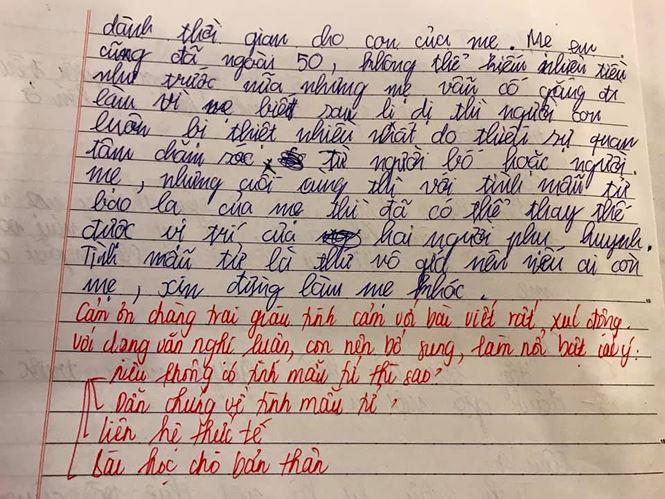 dành thời gian cho con của mẹ. Mẹ em
cũng đã ngoài 50, không thể kiếm nhiều tiền
như trước nữa nhưng mẹ vẫn cố gắng đi
làm vì mẹ biết sau li dị thì người con
luôn bị thiệt nhiều nhất do thiếu sự quan
tâm chăm sóc từ người bố hoặc người
mẹ, nhưng cuối cùng thì với tình mẫu tử
bao la của mẹ thì đã có thể thay thế
được vị trí của hai người phụ huynh.
Tình mẫu tử là thứ vô giá nên nếu ai còn
mẹ, xin đừng làm mẹ khóc.
Cảm ơn chàng trai giàu tình cảm với bài viết rất xúc động.
với dạng văn nghị luận, con nên bổ sung, làm nổi bật các ý:
nếu không có tình mẫu tử thì sao?
Dẫn chứng về tình mẫu tử?
liên hệ thực tế
Bài học cho bản thân